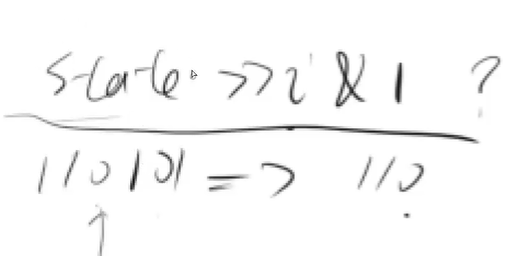 state >> i & 1 ?
110101 => 110